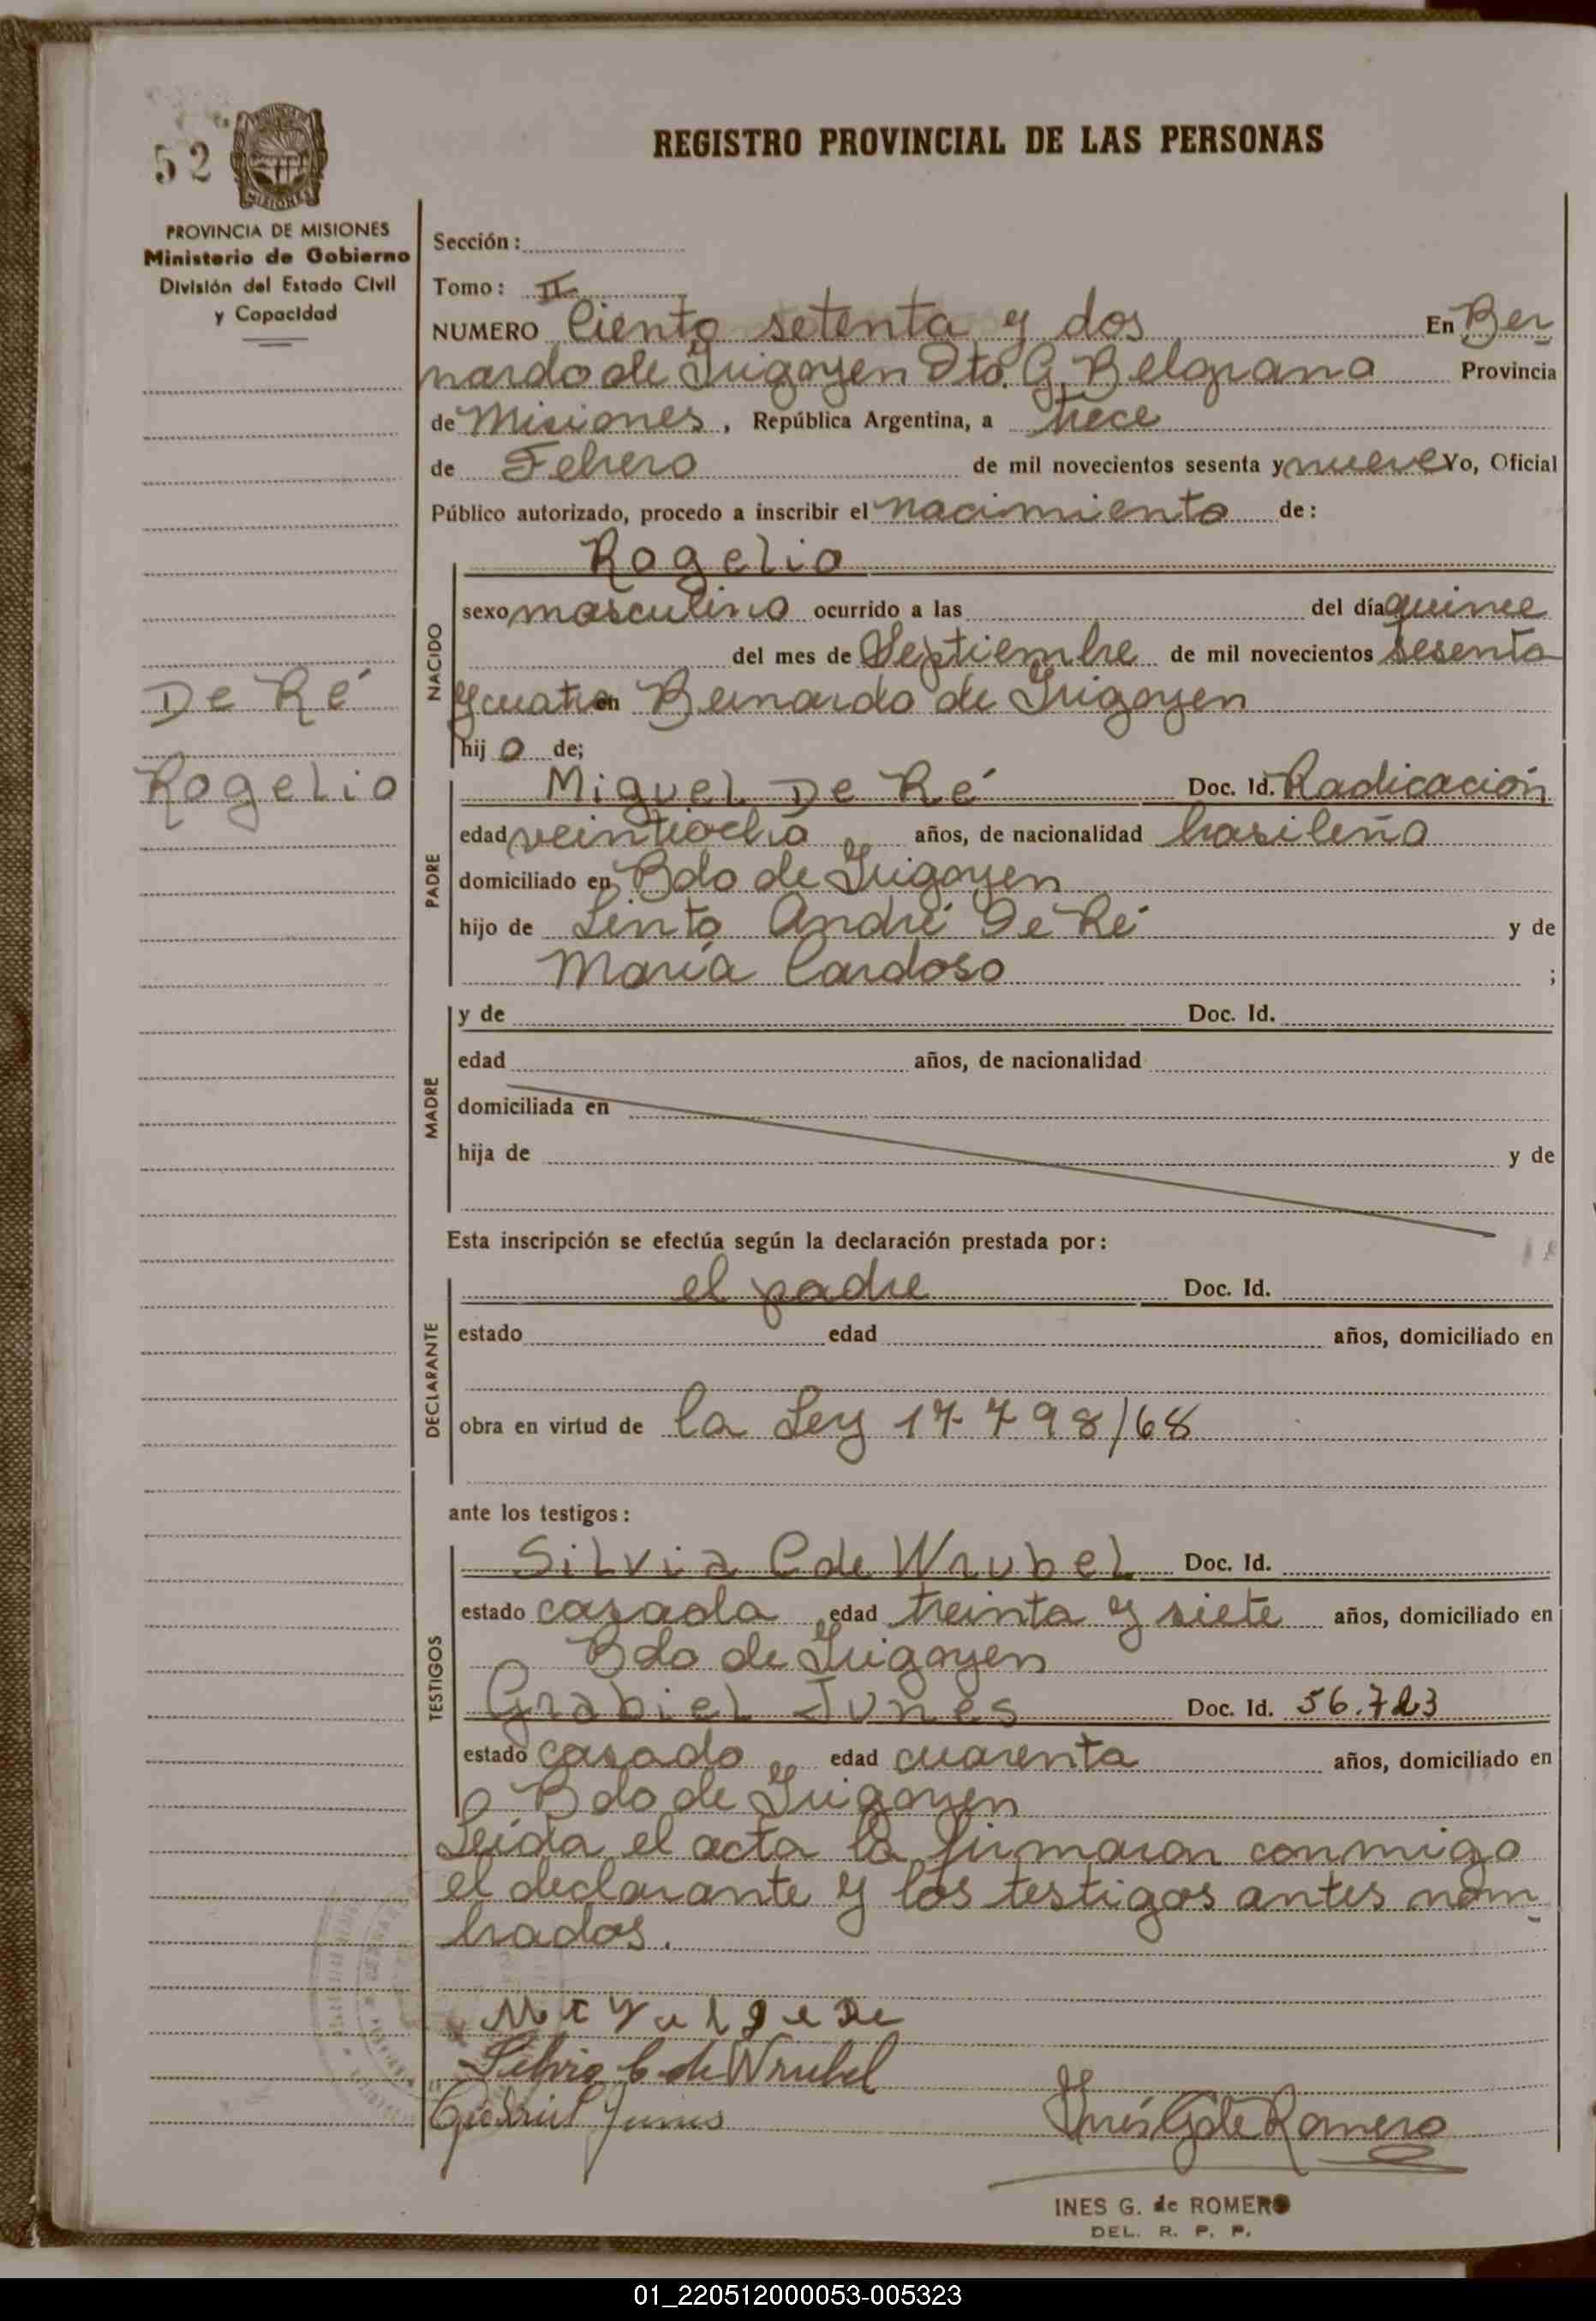 52
REGISTRO PROVINCIAL DE LAS PERSONAS
PROVINCIA DE MISIONES
Ministerio de Gobierno
División del Estado Civil
y Capacidad
Sección:
Tomo: II
NUMERO Ciento setenta y dos En Ber
nardo de Irigoyen Dto. G. Belgrano Provincia
de Misiones, República Argentina, a trece
de Febrero de mil novecientos sesenta y nueve Yo, Oficial
Público autorizado, procedo a inscribir el nacimiento de:
Rogelio
NACIDO
sexo masculino ocurrido a las del día quince
del mes de Septiembre de mil novecientos sesenta
y cuatro en Bernardo de Irigoyen
hijo de;
De Ré
Rogelio
PADRE
Miguel De Ré Doc. Id. Radicación
edad veintiocho años, de nacionalidad brasileña
domiciliado en Bdo de Irigoyen
hijo de Sinto André De Ré y de
María Cardoso ;
MADRE
y de Doc. Id.
edad años, de nacionalidad
domiciliada en
hija de y de
Esta inscripción se efectúa según la declaración prestada por:
DECLARANTE
el padre Doc. Id.
estado edad años, domiciliado en
obra en virtud de la Ley 17798/68
ante los testigos:
TESTIGOS
Silvia C de Wrubel Doc. Id.
estado casada edad treinta y siete años, domiciliado en
Bdo de Irigoyen
Grabiel Junes Doc. Id. 56.723
estado casado edad cuarenta años, domiciliado en
Bdo de Irigoyen
Leída el acta la firmaron conmigo
el declarante y los testigos antes nom
brados.
Silvia C. de Wrubel
Gabriel Junes
Inés G de Romero
INES G. de ROMERO
DEL. R. P. P.
01_220512000053-005323